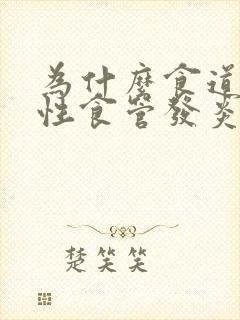 为什麼食道
性食管發炎
楚笑笑